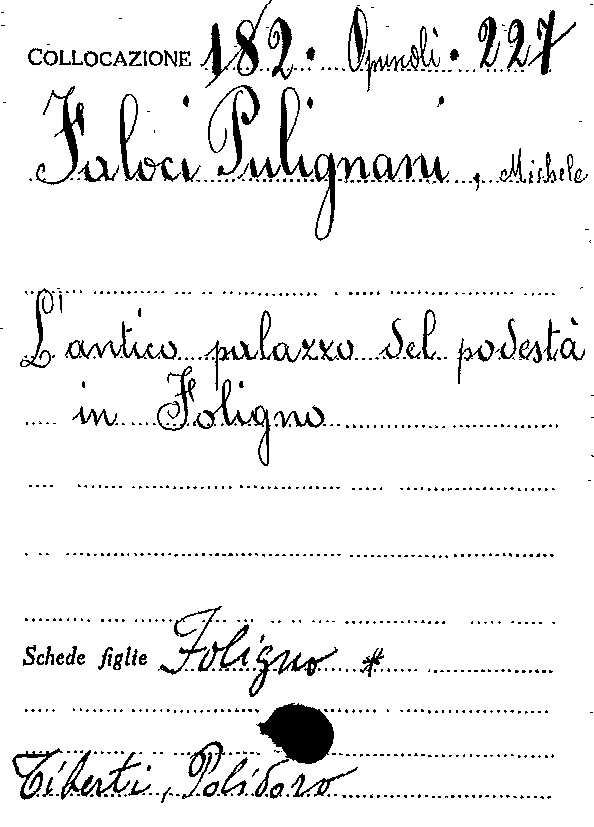 COLLOCAZIONE 182. Opuscoli. 227
Faloci Pulignani, Michele
L'antico palazzo del podestà
in Foligno
Schede figlie Foligno *
Tiberti, Polidoro